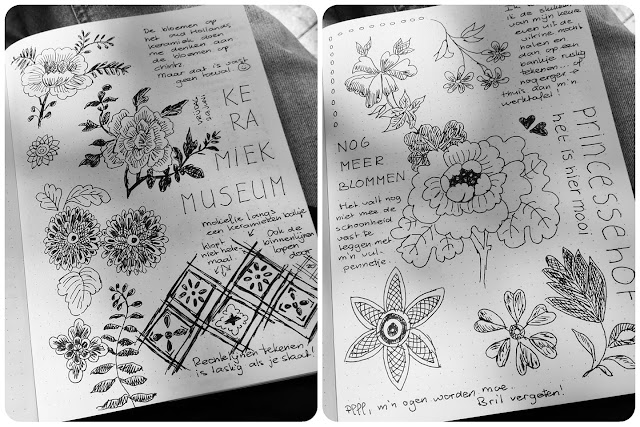 De bloemen op
het oud Hollands
keramiek doen
me denken aan
de bloemen op
chintz.
Maar dat is vast
geen toeval.
KE
RA
MIEK
MUSEUM
motiefje langs
een keramieken bakje
klopt
niet hele-
maal
Ook de
binnenlijnen
lopen
door
Rechte lijnen tekenen,
is lastig als je staat!
Ik
ik de stukken
van mijn keuze
even uit de
vitrine mocht
halen en
dan op een
bankje rustig
tekenen... of
nog erger →
thuis aan m'n
werktafel!
NOG
MEER
BLOMMEN
Het valt nog
niet mee de
schoonheid
vast te
leggen met
m'n vul-
pennetje.
princessehof
het is hier mooi
Pffff, m'n ogen worden moe.
Bril vergeten!